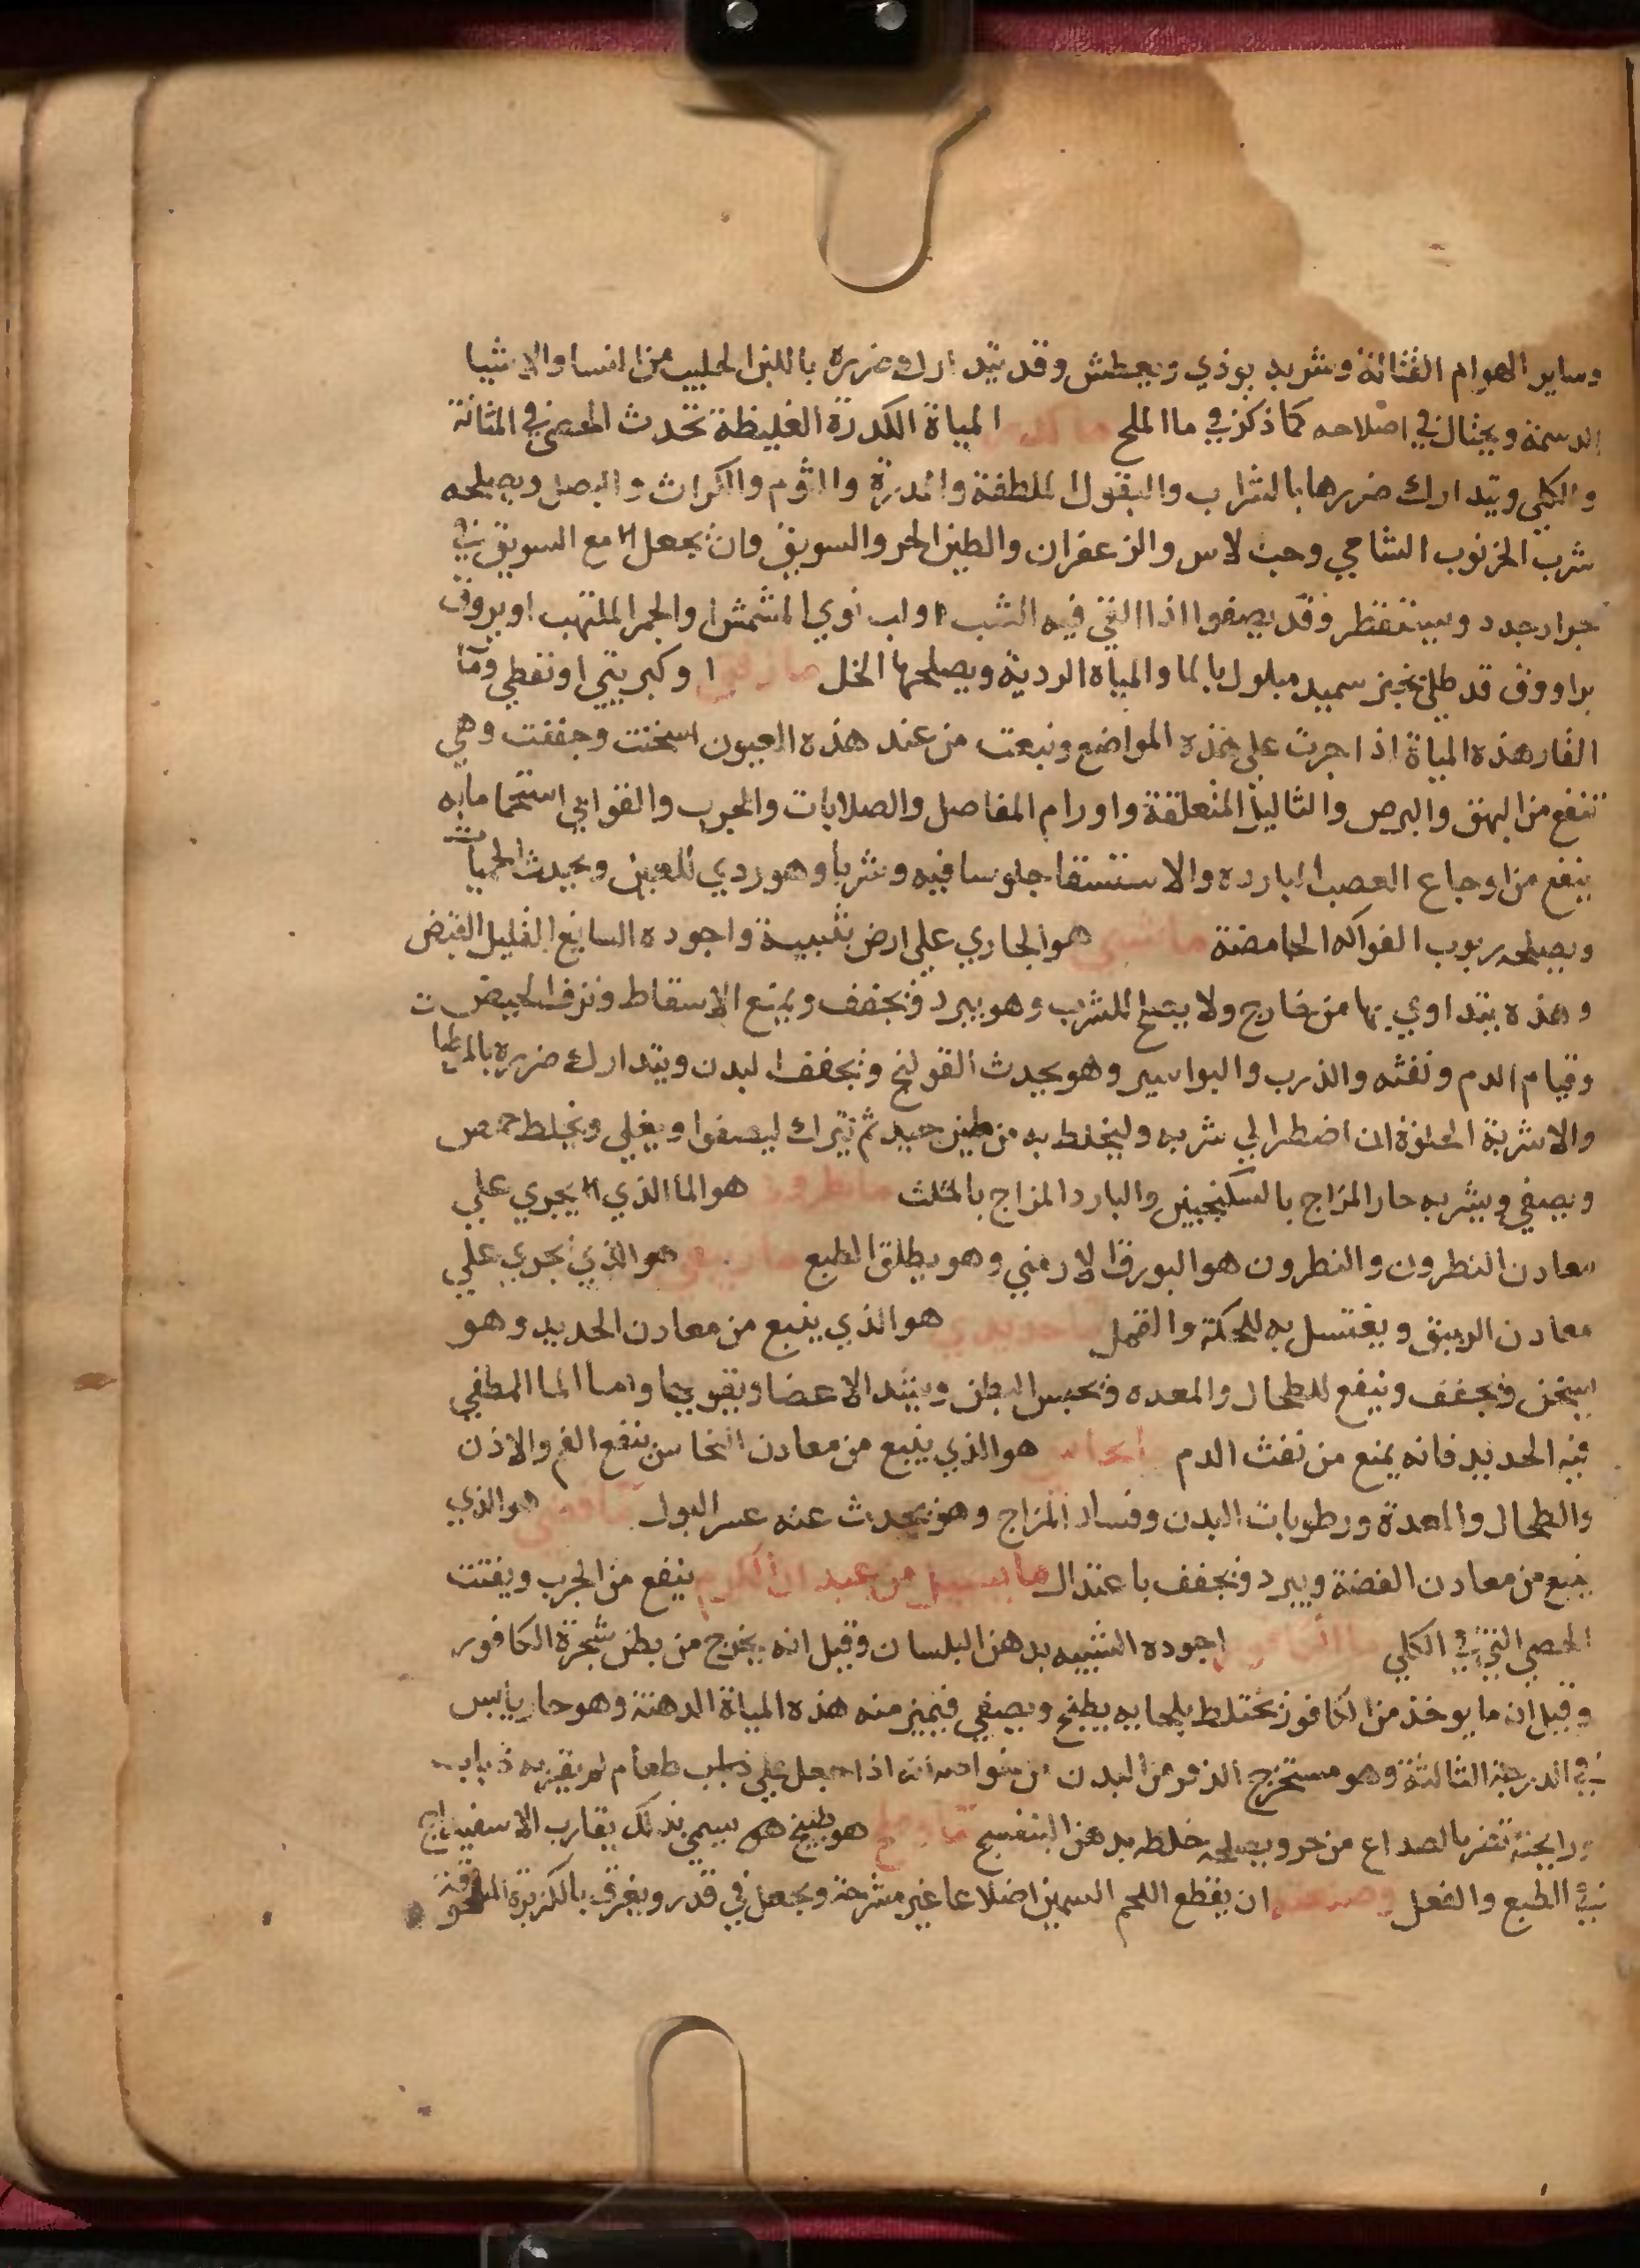 وساير الهوام القتالة وشربه يوذي ويعطش وقد يتدارك ضرره باللبن الحليب من انسا والاشيا
الدسمة ويحتال في اصلاحه كما ذكر في ما الملح ما كدر المياة الكدرة الغليظة تحدث الحصى في المثانة
والكلي ويتدارك ضررها بالشراب والبقول الملطفة والمدرة والثوم والكراث والبصل ويصلحه
شرب الخرنوب الشامي وحب لاس والزعفران والطين الحر والسويق وان يجعل مع السويق في
جرار جدد ويستقطر وقد يصفوا اذا القي فيه الشب او لب نوي المشمش او الجمر الملتهب او يروق
براووق قد طلي بخبز سميد مبلول بالما والمياه الردية ويصلحها الخل او كبريتي او نفطي وما
القار هذه المياة اذا جرت على هذه المواضع ونبعت من عند هذه العيون اسخنت وجففت وهي
تنفع من البهق والبرص والثاليل المتعلقة واورام المفاصل والصلابات والجرب والقوابي استحماما به
ينفع من اوجاع العصب البارده والاستسقا جلوسا فيه وشربا وهو ردي للعين ويحدث الحميات
ويصلحه ربوب الفواكه الحامضة ما شبي هو الجاري على ارض شبيبة واجوده السايغ القليل القبض
وهذه يتداوي بها من خارج ولا يصلح للشرب وهو يبرد ويجفف ويمنع الاسقاط ونزف الحيض
وقيام الدم ونفثه والذرب والبواسير وهو يحدث القولنج ويجفف البدن ويتدارك ضرره بالمطيا
والاشربة الحلوة ان اضطر الي شربه وليخلط به من طين جيد ثم يترك ليصفوا ويغلي ويخلط حمص
ويصفي ويشربه حار المزاج بالسكنجبين والبارد المزاج بالمثلث ما نطروني هو الما الذي يجري علي
معادن النطرون والنطرون هو البورق الارمني وهو يطلق الطبع هو الذي يجري علي
معادن الزيبق ويغتسل به للحكة والقمل حديدي هو الذي ينبع من معادن الحديد وهو
يسخن ويجفف وينفع للطحال والمعده ويحبس البطن ويشد الاعضا ويقويها واما الما المطفي
فيه الحديد فانه يمنع من نفث الدم هو الذي ينبع من معادن النحاس ينفع الفم والاذن
والطحال والمعدة ورطوبات البدن وفساد المزاج وهو يحدث عنه عسر البول هو الذي
ينبع من معادن الفضة ويبرد ويجفف باعتدال ينفع من الجرب ويفتت
الحصي التي في الكلي ما الكافور اجوده الشبيه بدهن البلسان وقيل انه يخرج من بطن شجرة الكافور
وقيل ان ما يوخذ من الكافور يختلط بلحايه يطبخ ويصفي فيميز منه هذه المياة الدهنة وهو حار يابس
في الدرجة الثالثة وهو مستخرج الذفر من البدن من خواصه انه اذا جعل علي طعام لم يقربه ذباب
ورايحته تضر بالصداع من حر ويصلحه خلطه بدهن البنفسج هو طبيخ يسمي بذلك يقارب الاسفيداج
في الطبع والفعل وصنعته ان يقطع اللحم السمين اضلاعا غير مشرحة ويجعل في قدر ويغرق بالكزبرة المدقوقة